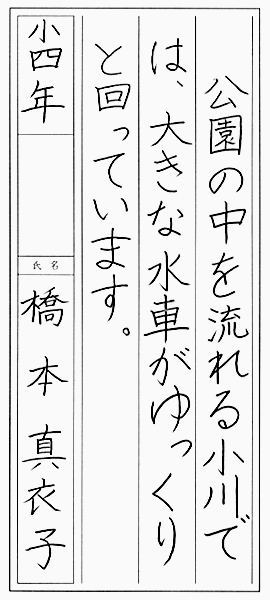 公園の中を流れる小川で
は、大きな水車がゆっくり
と回っています。
小四年
氏名
橋本真衣子